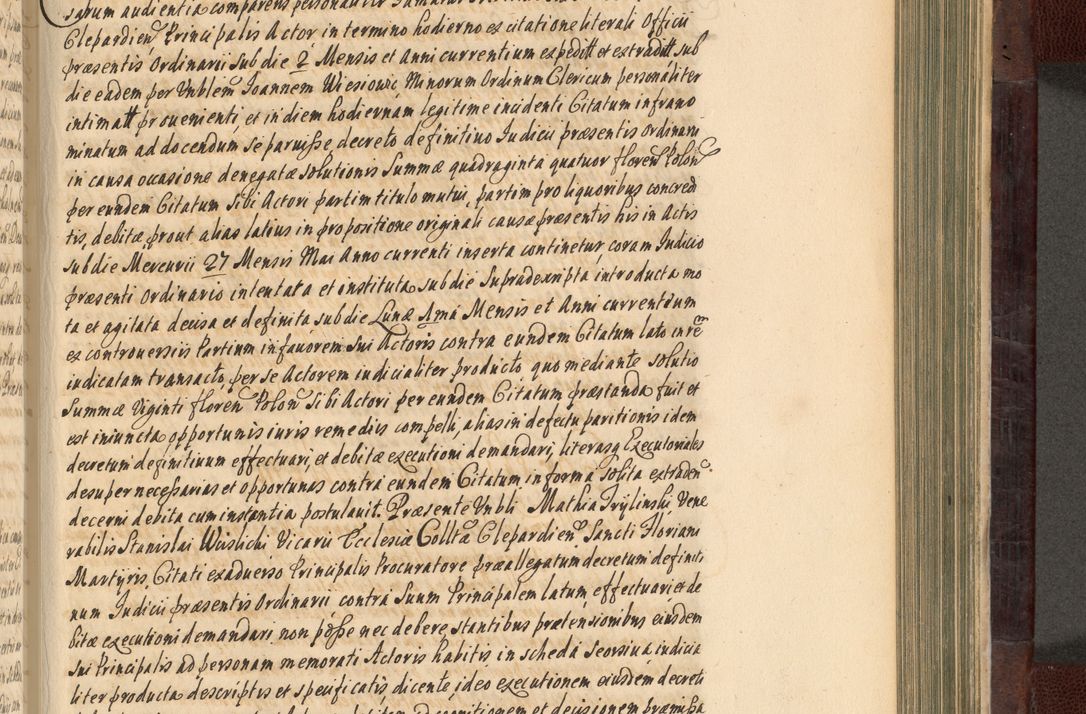 sarum audientia comparens personaliter
Clepardien Principalis Actor, in termino hodierno ex citatione literali Officii
præsentis Ordinarii sub die 2 Mensis et Anni currentium expeditt et extraditt, sub
die eadem per Vnblem Joannem Wiesiowic, Minorum Ordinum Clericum personaliter
intimatt prouenienti, et in diem hodiernam legitime incidenti Citatum infrano
minatum ad docendum se paruiße, decreto definitiuo Judicii præsentis ordinarii
in causa occasione denegatæ solutionis Summæ quadraginta quatuor floren Polon
per eundem Citatum sibi Actori partim titulo mutui, partim pro liquoribus concred
tis, debitæ prout alias latius in propositione originali causæ præsentis his in Actis
sub die Mercurii 27 Mensis Mai Anno currenti inserta continetur, coram Judicio
præsenti Ordinario intentata et instituta, sub die Supradexripta introducta mo
ta et agitata decisa et definita sub die Lunæ 1ma Mensis et Anni currentium
ex controversiis Partium in fauorem sui Actoris contra eundem Citatum lato in rem
iudicatam transacto, per se Actorem iudicialiter producto, quo mediante solutio
Summæ Viginti floren Polon sibi Actori per eundem Citatum præstanda fuit et
est iniuncta, opportunis iuris remediis compelli, alias in defectu paritionis idem
decretum definitiuum effectuari, et debitæ executioni demandari, literasq Executoriales
desuper neceßarias et opportunas contra eundem Citatum in forma solita extraden
decerni debita cum instantia postulauit. Præsente Vnbli Mathia Tryliński, Vene
rabilis Stanislai Wislicki Vicarii Ecclesiæ Colltæ Clepardien Sancti Floriani
Martyris, Citati ex aduerso Principalis Procuratore præallegatum decretum definiti
uum Judicii præsentis Ordinarii contra Suum Principalem latum, effectuari et de
bitæ executioni demandari non poße nec debere, stantibus prætensionibus eiusdem
sui Principalis ad personam memorati Actoris habitis, in scheda seorsiua, iudicia
liter producta, descriptis et specificatis, dicente, ideo executionem eiusdem decreti
cognitionem et decisionem præmißa